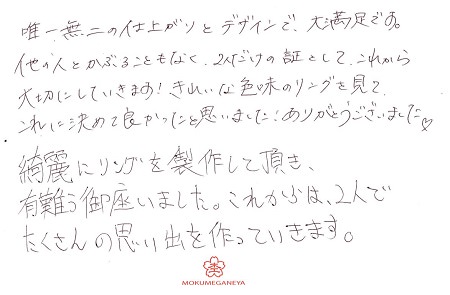 唯一無二の仕上がりとデザインで、大満足です。
他の人とかぶることもなく、2人だけの証として、これから
大切にしていきます！きれいな色味のリングを見て、
これに決めて良かったと思いました！ありがとうございました♡
綺麗にリングを製作して頂き、
有難う御座いました。これからは、2人で
たくさんの思い出を作っていきます。
MOKUMEGANEYA